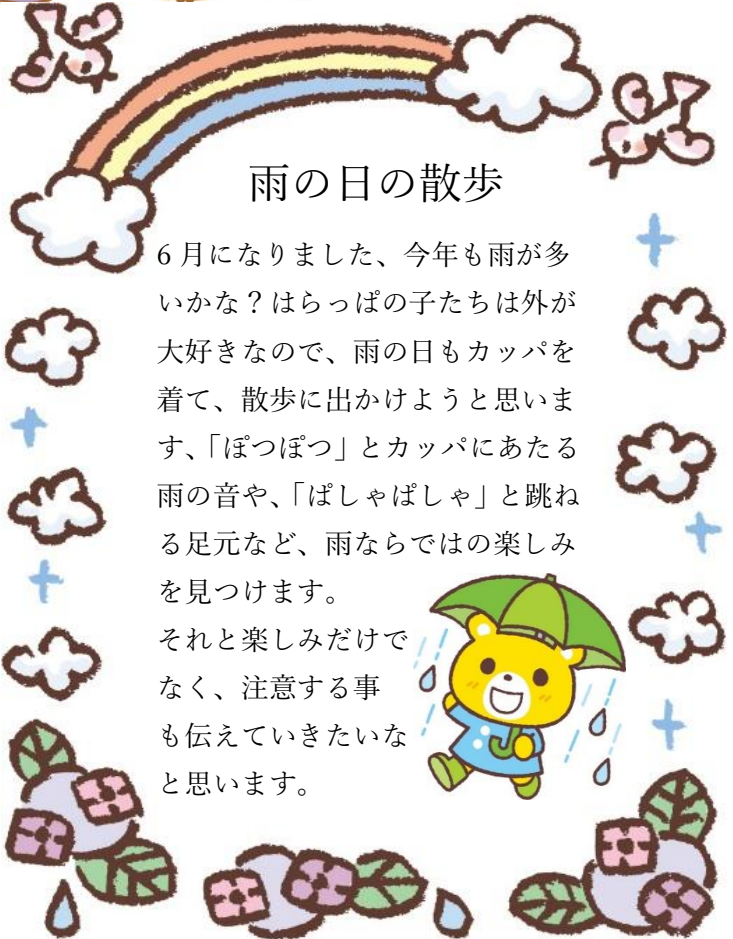 雨の日の散歩
6月になりました、今年も雨が多
いかな？はらっぱの子たちは外が
大好きなので、雨の日もカッパを
着て、散歩に出かけようと思いま
す、「ぽつぽつ」とカッパにあたる
雨の音や、「ぱしゃぱしゃ」と跳ね
る足元など、雨ならではの楽しみ
を見つけます。
それと楽しみだけで
なく、注意する事
も伝えていきたいな
と思います。